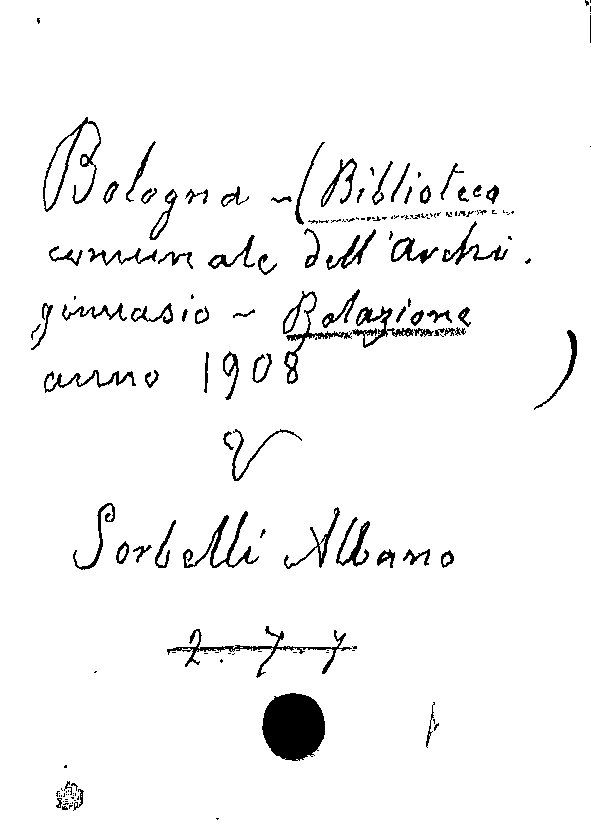 Bologna - (Biblioteca
comunale dell'Archi.
ginnasio - Relazione
anno 1908 )
V
Sorbelli Albano
2.7.7